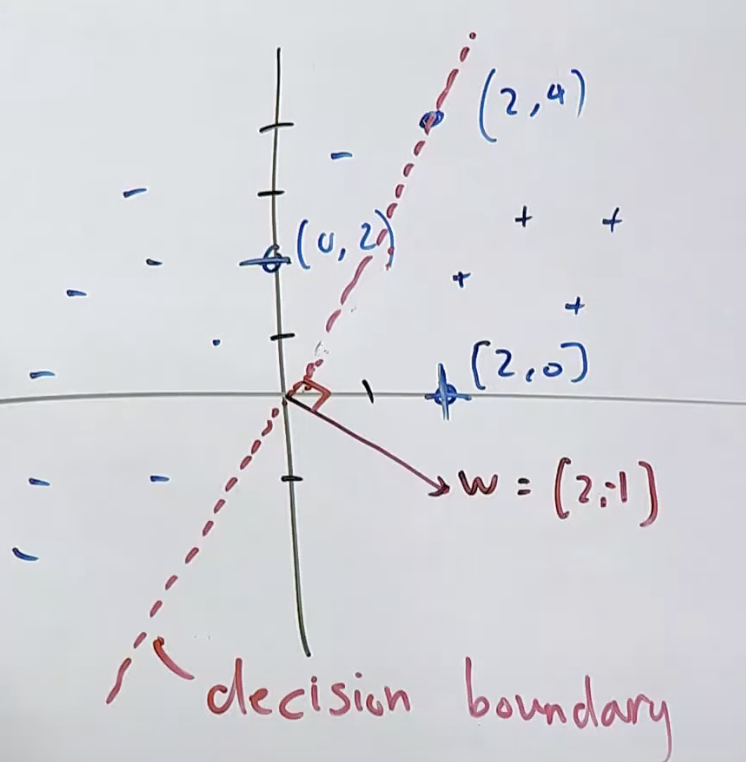 (2,4)
(0,2)
(2,0)
w = (2,-1)
decision boundary